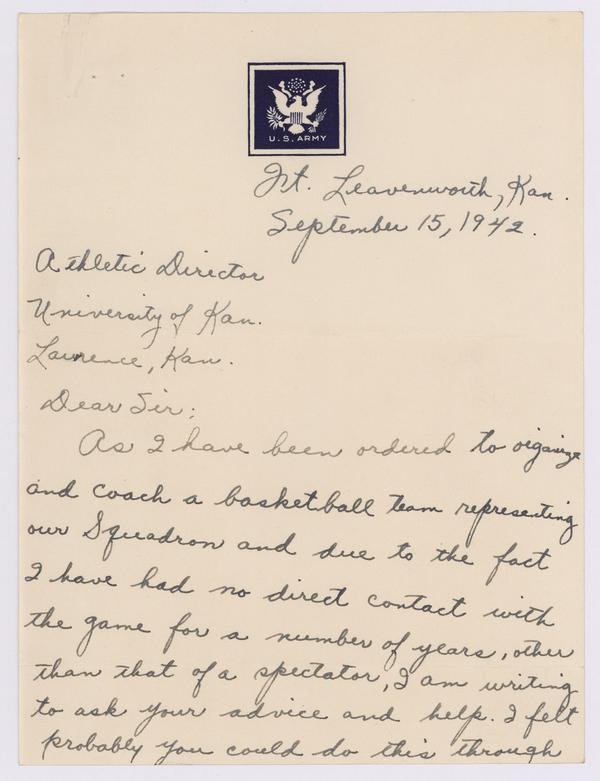 U.S. ARMY
Ft. Leavenworth, Kan.
September 15, 1942.
Athletic Director
University of Kan.
Lawrence, Kan.
Dear Sir:
As I have been ordered to oiganize
and coach a basketball team representing
our Squadron and due to the fact
I have had no direct contact with
the game for a number of years, other
than that of a spectator, I am writing
to ask your advice and help. I felt
probably you could do this through